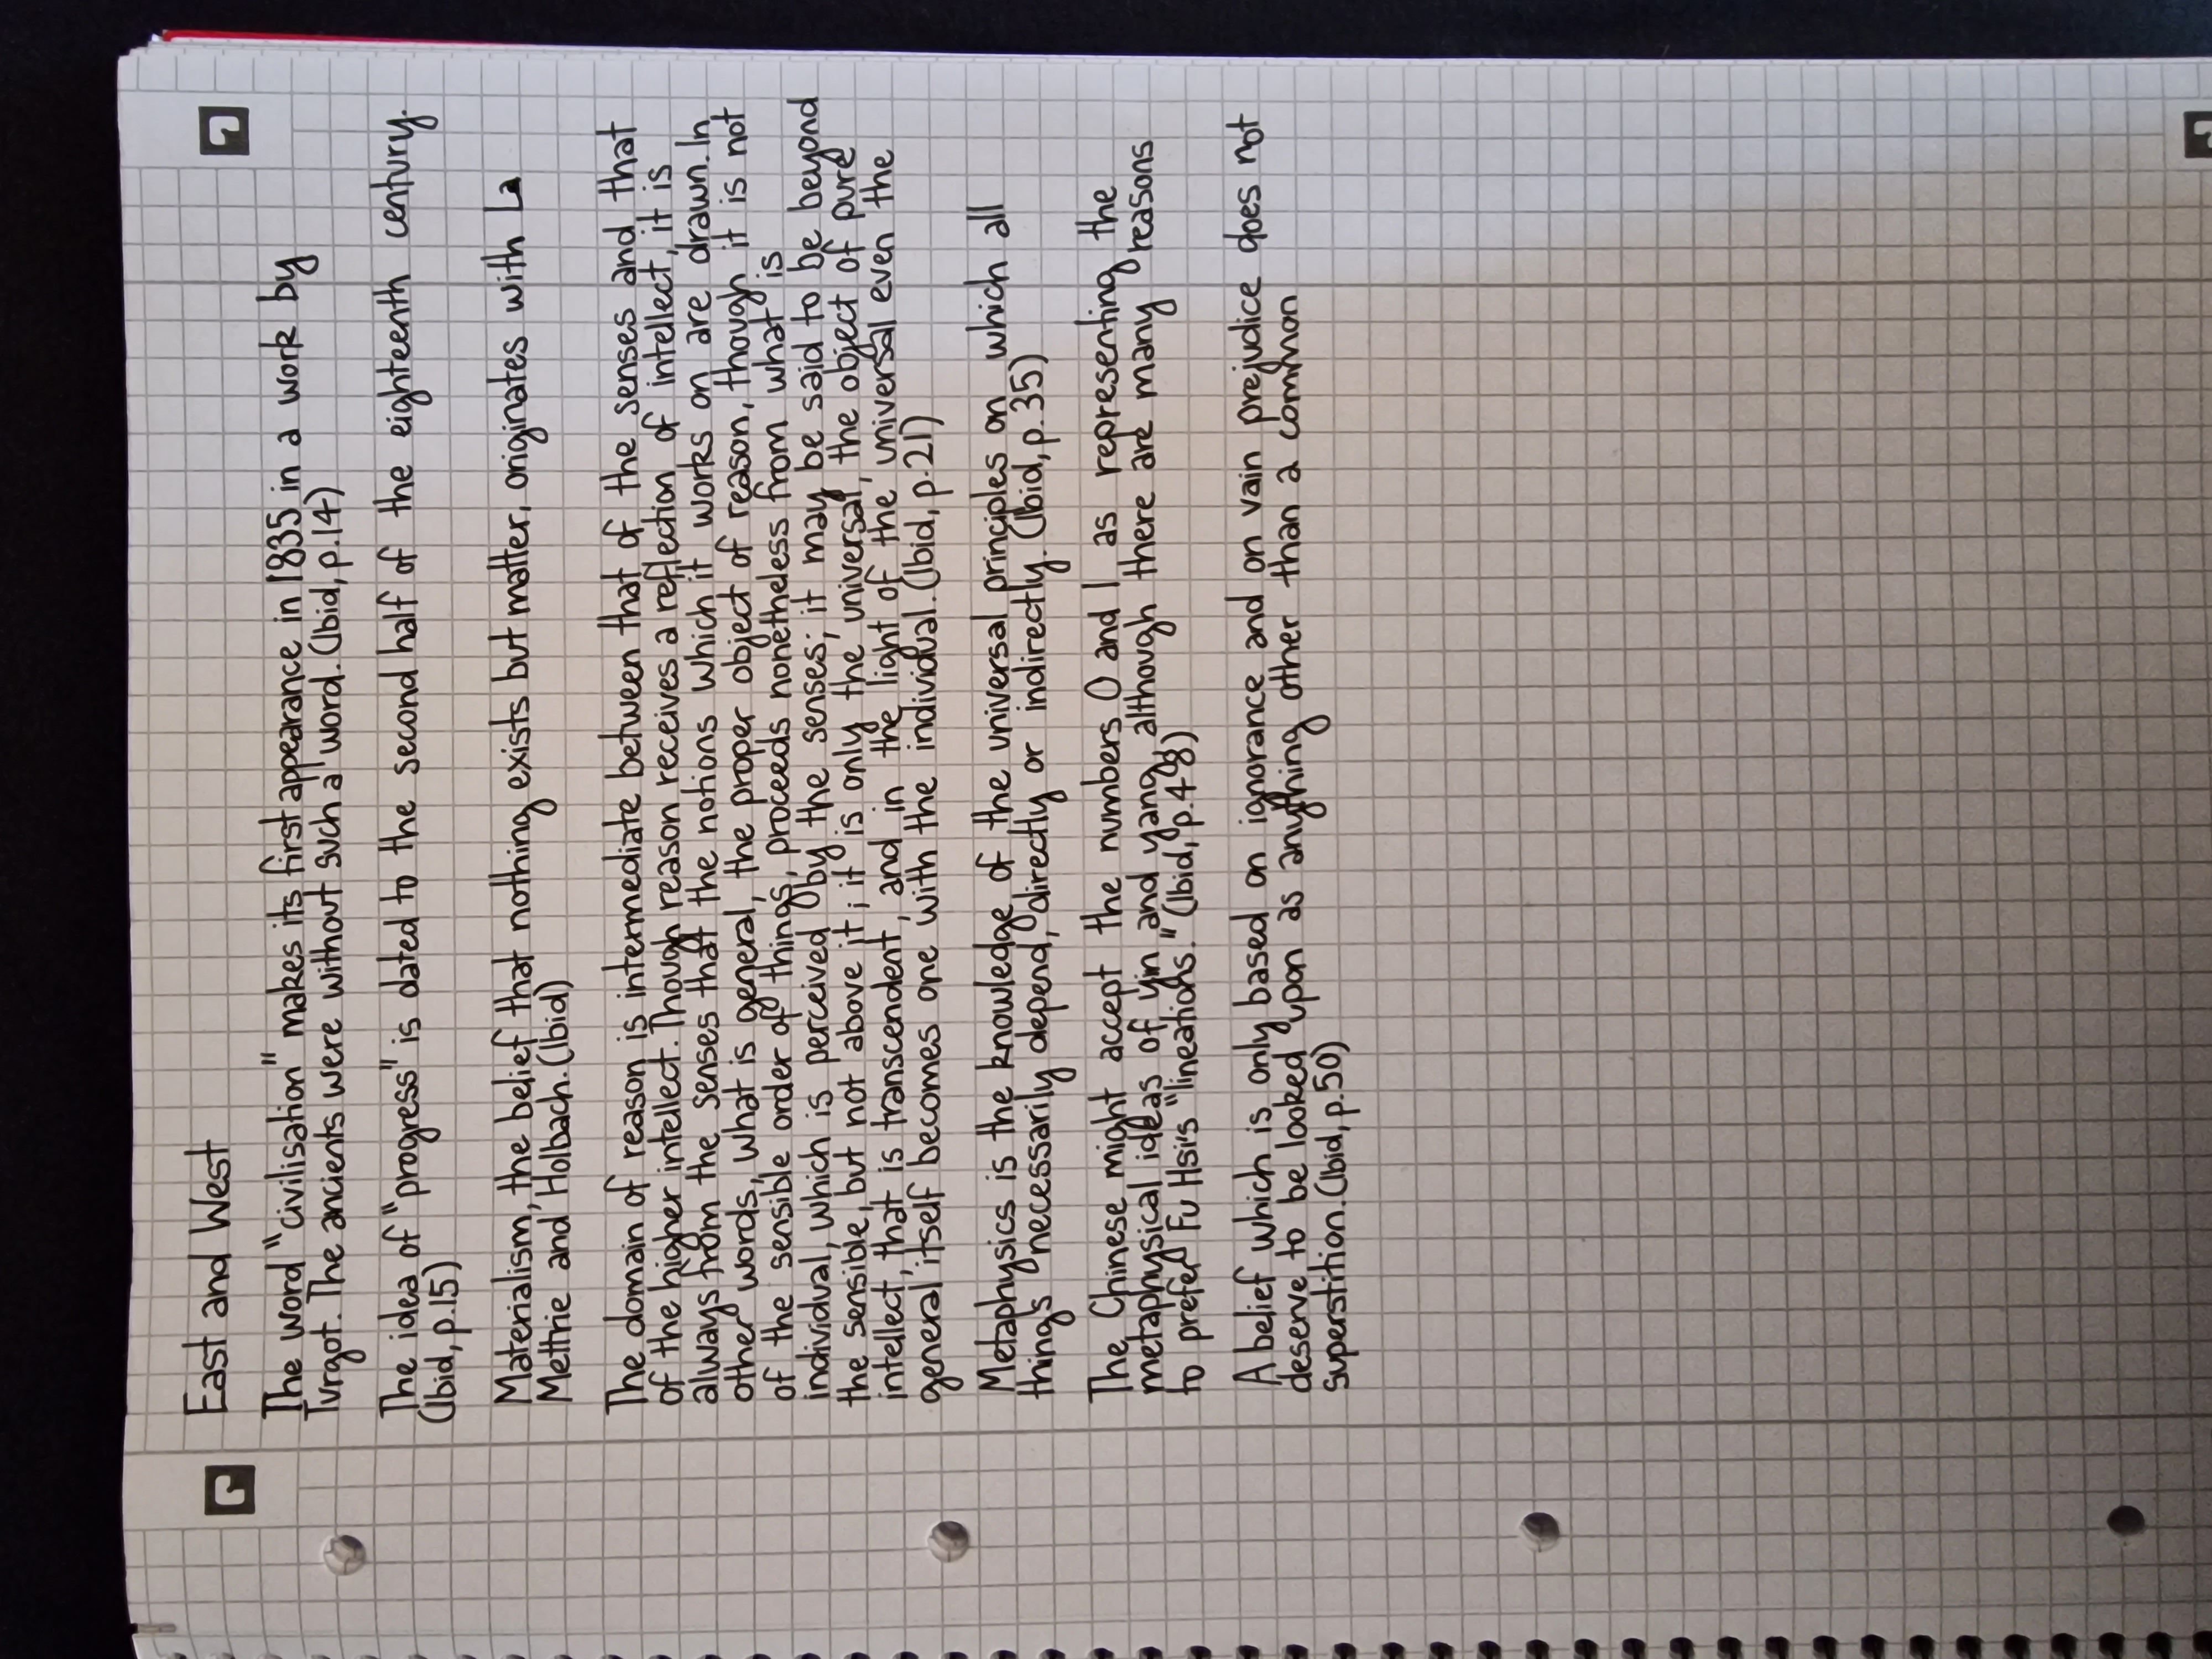 East and West
The word "civilisation" makes its first appearance in 1835 in a work by
Turgot. The ancients were without such a word. (Ibid, p.14)
The idea of "progress" is dated to the second half of the eighteenth century.
(Ibid, p.15)
Materialism, the belief that nothing exists but matter, originates with La
Mettrie and Holbach. (Ibid)
The domain of reason is intermediate between that of the senses and that
of the higher intellect. Though reason receives a reflection of intellect, it is
always from the senses that the notions which it works on are drawn. In
other words, what is general, the proper object of reason, though it is not
of the sensible order of things, proceeds nonetheless from what is
individual, which is perceived by the senses; it may be said to be beyond
the sensible, but not above it; it is only the universal, the object of pure
intellect, that is transcendent, and in the light of the universal even the
general itself becomes one with the individual. (Ibid, p.21)
Metaphysics is the knowledge of the universal principles on which all
things necessarily depend, directly or indirectly. (Ibid, p.35)
The Chinese might accept the numbers 0 and 1 as representing the
metaphysical ideas of yin and yang, although there are many reasons
to prefer Fu Hsi's "lineations." (Ibid, p.48)
A belief which is only based on ignorance and on vain prejudice does not
deserve to be looked upon as anything other than a common
superstition. (Ibid, p.50)